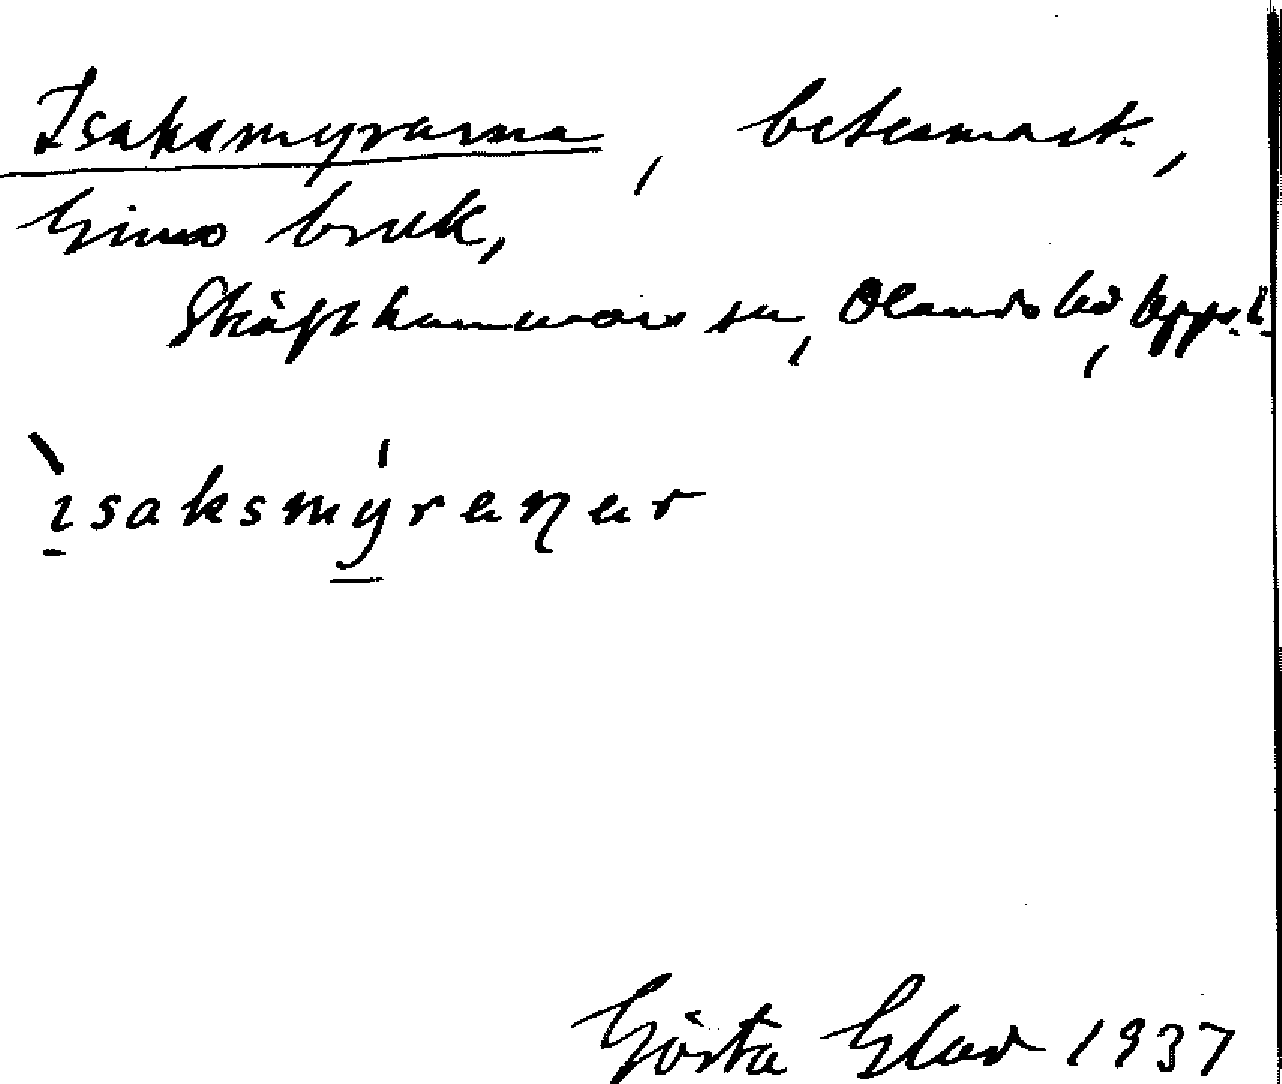 Isaksmyrarna, betesmark,
Gimo bruk,
Skäfthammars sn, Olands hd, Upps. l.
ìsaksmy̠ránar
Gösta Glad 1937